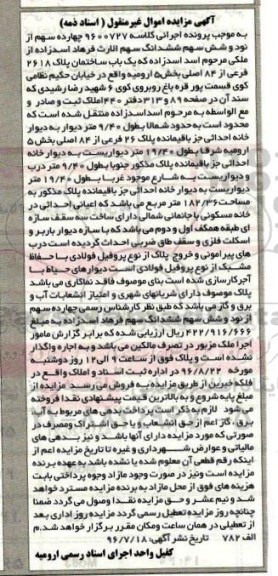 آگهی مزایده اموال غیرمنقول ( اسناد ذمه )
به موجب پرونده اجرائی کلاسه ۹۶۰۰۷۲۷ چهارده سهم از
نود و شش سهم ششدانگ سهم الارث فرهاد اسدزاده از
ملکی مرحوم اسد اسدزاده که یک باب ساختمان پلاک ۲۶۱۸
فرعی از ۸۴ اصلی بخش۵ ارومیه واقع در خیابان حکیم نظامی
کوی قسمت پور قره باغ روبروی کوی ۶ شهید رضا رشیدی که
سند آن در صفحه ۸۹ و۳۱۳ دفتر ۴۴۰املاک ثبت و صادر و
مع الواسطه به مرحوم اسداسدزاده منتقل شده است که
محدود است به حدود شمالا بطول ۹/۴۰ متر دیوار به دیوار
خانه احداثی جز باقیمانده پلاک ۲۶ فرعی از ۸۴ اصلی بخش ۵
ارومیه شرقا بطول ۱۹/۴۰ متر دیواریست به دیوار خانه
احداثی جز باقیمانده پلاک مذکور جنوبا بطول ۹/۴۰ متر درب
و دیواریست به شارع موجود غربا بطول ۱۹/۴۰ متر
دیواریست به دیوار خانه احداثی جز باقیمانده پلاک مذکور به
مساحت ۱۸۲/۳۶ متر مربع می باشد که اعیانی احداثی در
خانه مسکونی با جانمائی شمالی دارای ساخت سه سقف سازه
ای طبقه همکف اول و دوم می باشد که با سازه دیوار باربر و
اسکلت فلزی و سقف طاق ضربی احداث گردیده است درب
های پیرامونی و خروج پلاک از نوع پروفیل فولادی با حفاظ
مشبک از نوع پروفیل فولادی است دیوار های حیاط با
آجرکارسازی شده است بنای موصوف فاقد نماکاری می باشد
پلاک موصوف دارای شربانهای شهری و امتیاز انشعابات آب و
برق و گاز می باشد که طبق نظر کارشناس رسمی چهارده سهم
از نود و شش سهم ششدانگ سهم فرهاد اسدزاده به مبلغ
۴۲۲/۹۱۶/۶۶۶ ریال ارزیابی شده که برابر گزارش مامور
اجرا ملک مزبور در تصرف مالکین می باشد و به اجاره واگذار
نشده است و پلاک فوق از ساعت ۹ الی۱۲ روز دوشنبه
مورخه ۹۶/۸/۲۲ در اداره ثبت اسناد و املاک واقع در
فلکه خیرین از طریق مزایده به فروش می رسد مزایده از
مبلغ پایه شروع و به بالاترین قیمت پیشنهادی نقدا فروخته
می شود لازم به ذکر است پرداخت بدهی های مربوط به آب
برق ، گاز اعم از حق انشعاب و یا حق اشتراک ومصرف در
صورتی که مورد مزایده دارای آنها باشد و نیز بدهی های
مالیاتی و عوارض شهرداری و غیره تا تاریخ مزایده اعم از
اینکه رقم قطعی آن معلوم شده یا نشده باشد به عهده برنده
مزایده است ونیز در صورت وجود مازاد وجوه پرداختی بابت
هزینه های فوق از محل مازاد به برنده مزایده مسترد خواهد
شد و نیم عشر و حق مزایده نقدا وصول می گردد ضمنا
چنانچه روز مزایده تعطیل رسمی گردد مزایده روز اداری بعد
از تعطیلی در همان ساعت ومکان مقرر برگزار خواهد شد.م
الف ۷۸۲ تاریخ نشر آگهی: ۹۶/۷/۱۸
کفیل واحد اجرای اسناد رسمی ارومیه